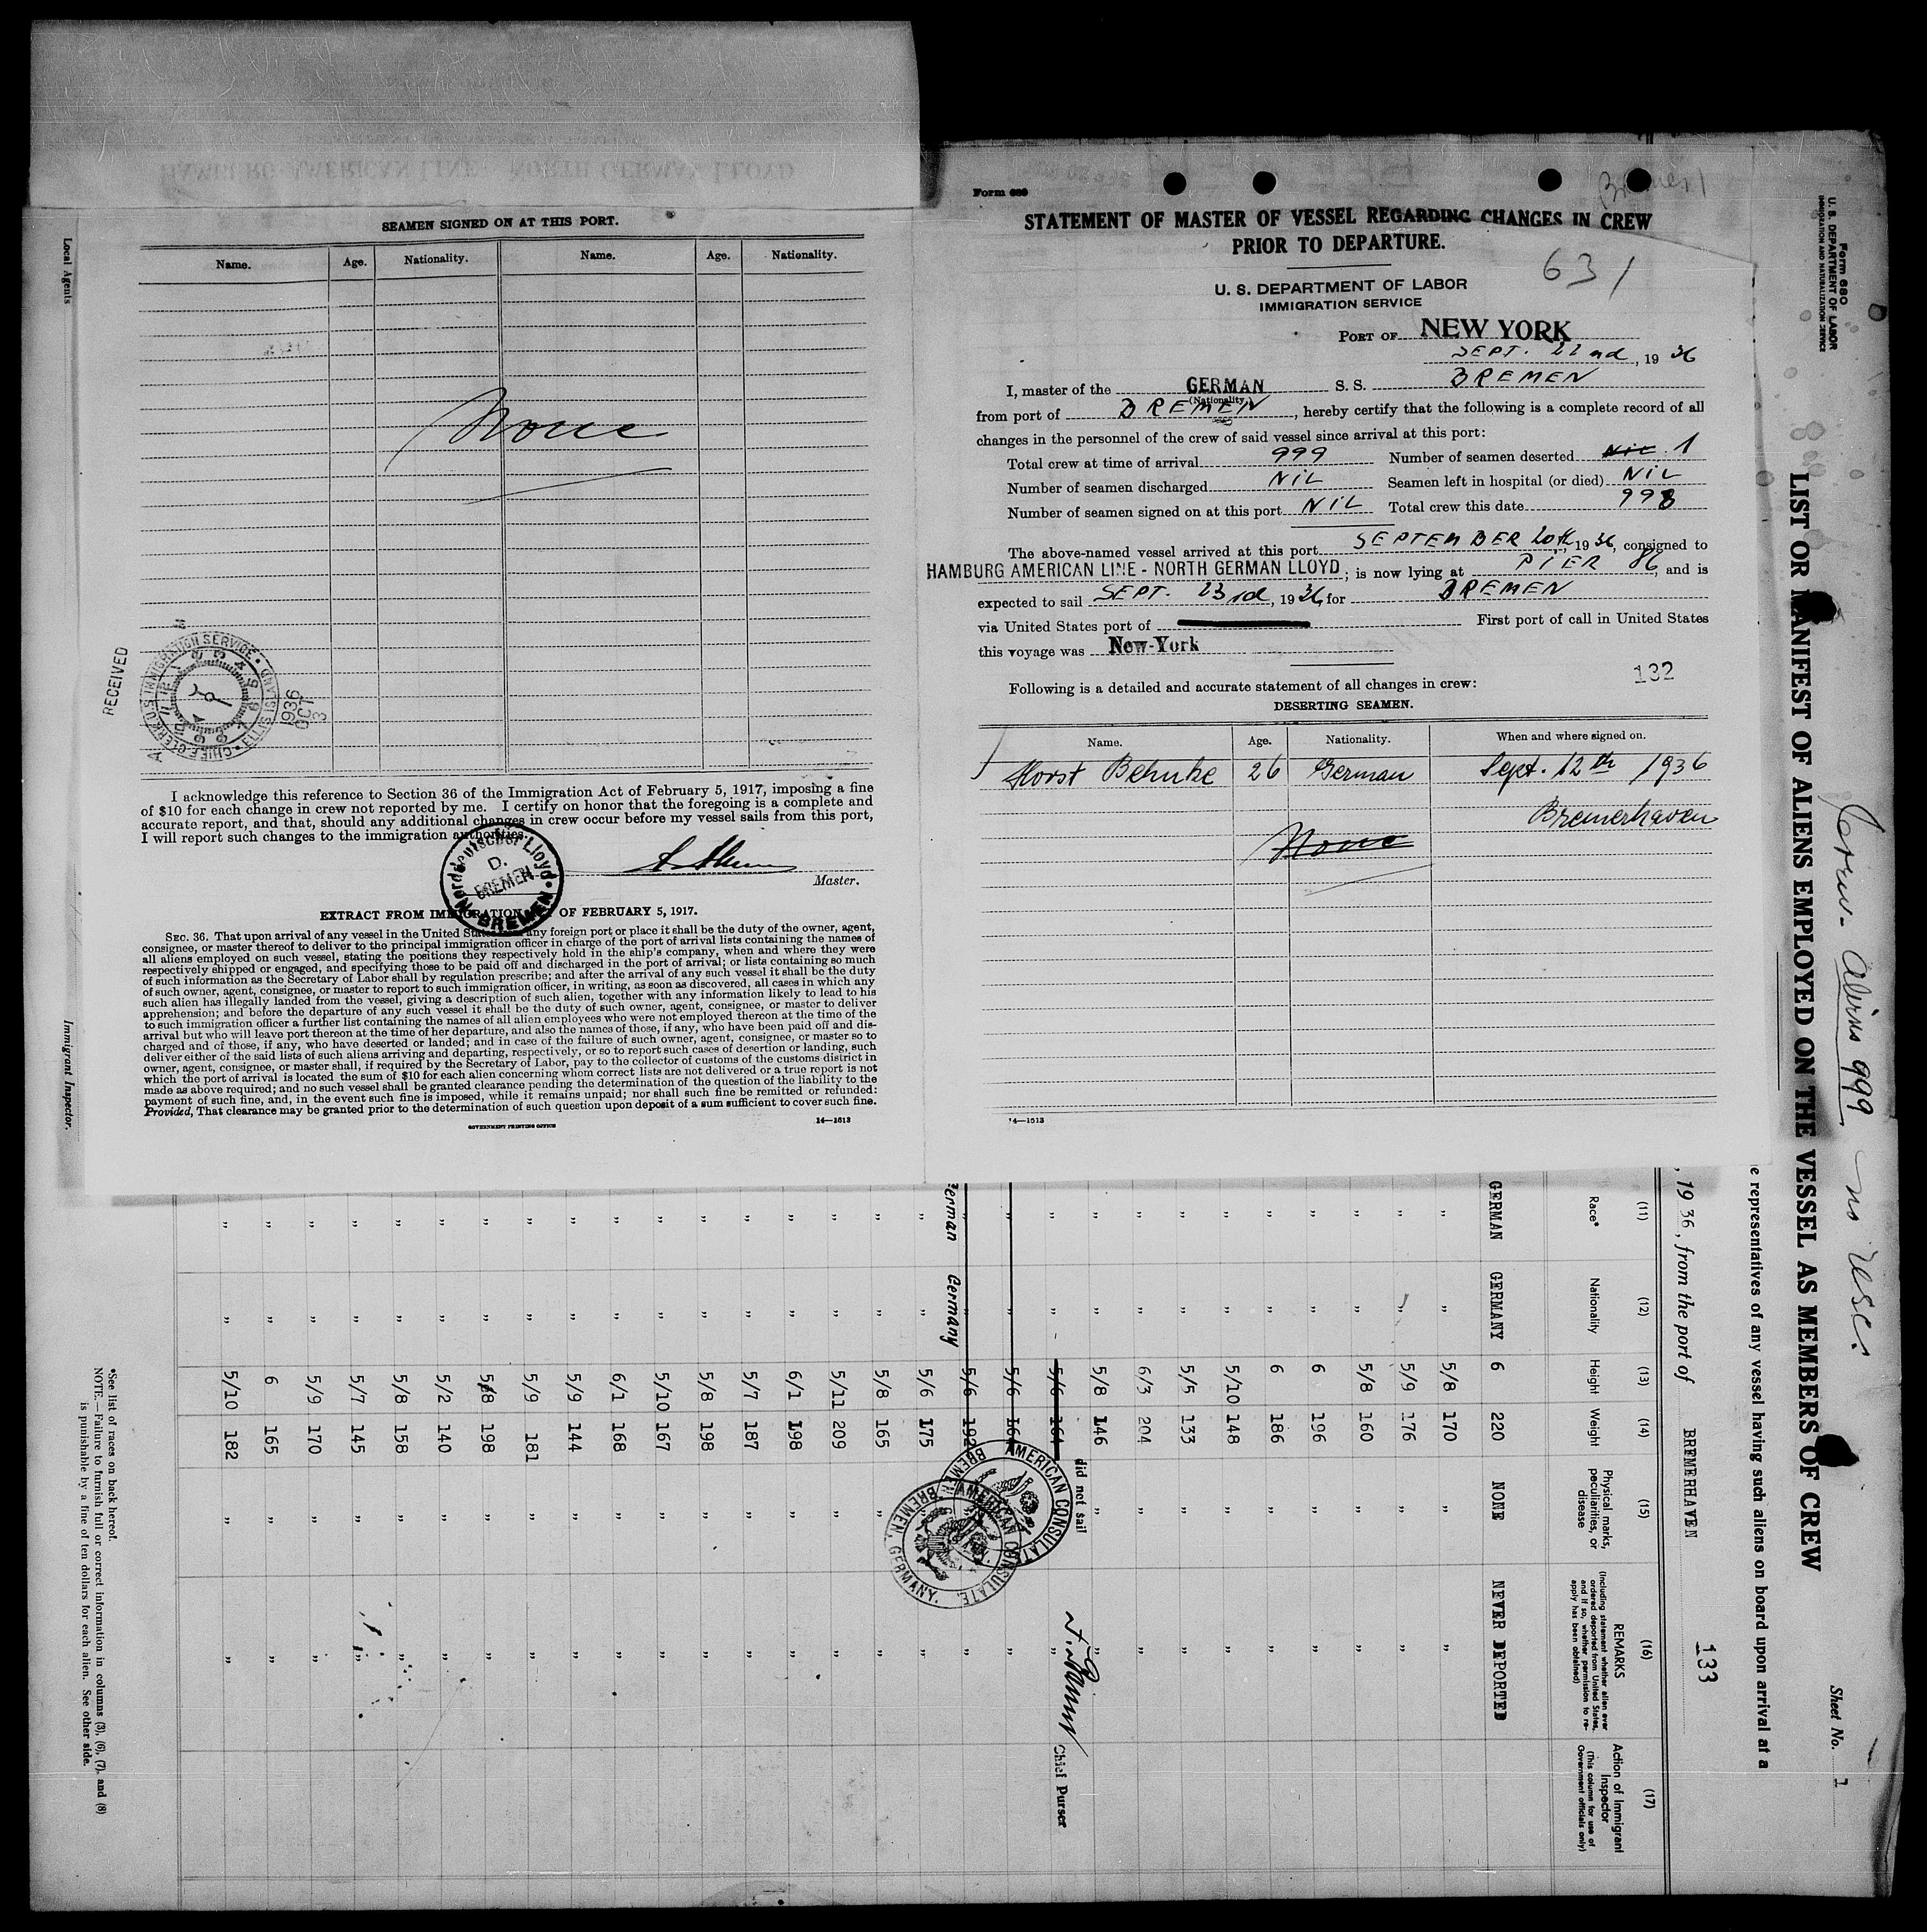 SEAMEN SIGNED ON AT THIS PORT.
Name. Age. Nationality. Name. Age. Nationality.
None
Local Agents
Immigrant Inspector.
RECEIVED
CHIEF CLERK U.S. IMMIGRATION SERVICE • ELLIS ISLAND
1936 OCT 3
I acknowledge this reference to Section 36 of the Immigration Act of February 5, 1917, imposing a fine
of $10 for each change in crew not reported by me. I certify on honor that the foregoing is a complete and
accurate report, and that, should any additional changes in crew occur before my vessel sails from this port,
I will report such changes to the immigration authorities.
Norddeutscher Lloyd • BREMEN •
D. BREMEN
Master.
EXTRACT FROM IMMIGRATION OF FEBRUARY 5, 1917.
SEC. 36. That upon arrival of any vessel in the United States any foreign port or place it shall be the duty of the owner, agent,
consignee, or master thereof to deliver to the principal immigration officer in charge of the port of arrival lists containing the names of
all aliens employed on such vessel, stating the positions they respectively hold in the ship's company, when and where they were
respectively shipped or engaged, and specifying those to be paid off and discharged in the port of arrival; or lists containing so much
of such information as the Secretary of Labor shall by regulation prescribe; and after the arrival of any such vessel it shall be the duty
of such owner, agent, consignee, or master to report to such immigration officer, in writing, as soon as discovered, all cases in which any
such alien has illegally landed from the vessel, giving a description of such alien, together with any information likely to lead to his
apprehension; and before the departure of any such vessel it shall be the duty of such owner, agent, consignee, or master to deliver
to such immigration officer a further list containing the names of all alien employees who were not employed thereon at the time of the
arrival but who will leave port thereon at the time of her departure, and also the names of those, if any, who have been paid off and dis-
charged and of those, if any, who have deserted or landed; and in case of the failure of such owner, agent, consignee, or master so to
deliver either of the said lists of such aliens arriving and departing, respectively, or so to report such cases of desertion or landing, such
owner, agent, consignee, or master shall, if required by the Secretary of Labor, pay to the collector of customs of the customs district in
which the port of arrival is located the sum of $10 for each alien concerning whom correct lists are not delivered or a true report is not
made as above required; and no such vessel shall be granted clearance pending the determination of the question of the liability to the
payment of such fine, and, in the event such fine is imposed, while it remains unpaid; nor shall such fine be remitted or refunded:
Provided, That clearance may be granted prior to the determination of such question upon deposit of a sum sufficient to cover such fine.
GOVERNMENT PRINTING OFFICE 14—1513
Form 689
Bremen
STATEMENT OF MASTER OF VESSEL REGARDING CHANGES IN CREW
PRIOR TO DEPARTURE.
631
U. S. DEPARTMENT OF LABOR
IMMIGRATION SERVICE
PORT OF NEW YORK
SEPT. 22nd, 1936
I, master of the GERMAN S. S. BREMEN
(Nationality)
from port of BREMEN, hereby certify that the following is a complete record of all
changes in the personnel of the crew of said vessel since arrival at this port:
Total crew at time of arrival 999 Number of seamen deserted Nil 1
Number of seamen discharged NIL Seamen left in hospital (or died) NIL
Number of seamen signed on at this port NIL Total crew this date 998
The above-named vessel arrived at this port SEPTEMBER 20th, 1936, consigned to
HAMBURG AMERICAN LINE - NORTH GERMAN LLOYD; is now lying at PIER 86, and is
expected to sail SEPT. 23rd, 1936, for BREMEN
via United States port of First port of call in United States
this voyage was New-York
132
Following is a detailed and accurate statement of all changes in crew:
DESERTING SEAMEN.
Name. Age. Nationality. When and where signed on.
Horst Behnke 26 German Sept. 12th 1936
Bremerhaven
None
14—1513
Form 680
U. S. DEPARTMENT OF LABOR
IMMIGRATION AND NATURALIZATION SERVICE
LIST OR MANIFEST OF ALIENS EMPLOYED ON THE VESSEL AS MEMBERS OF CREW
Aliens 999
Sheet No. 1
e representatives of any vessel having such aliens on board upon arrival at a
, 1936, from the port of BREMERHAVEN
133
(11) (12) (13) (14) (15) (16) (17)
Race* Nationality Height Weight Physical marks, peculiarities, or disease REMARKS (Including statement whether alien ever ordered deported from United States, and if so, whether permission to re-apply has been obtained) Action of Immigrant Inspector (This column for use of Government officials only)
GERMAN GERMANY 6 220 NONE NEVER DEPORTED
" " 5/8 170 " "
" " 5/9 176 " "
" " 5/8 160 " "
" " 6 196 " "
" " 6 186 " "
" " 5/10 148 " "
" " 5/5 133 " "
" " 6/3 204 " "
" " 5/8 146 " "
did not sail
" " 5/6 164 " Chief Purser
" " 5/6 "
" " 5/6 192 "
German Germany
" " 5/6 175 "
" " 5/8 165 " "
" " 5/11 209 " "
" " 6/1 198 " "
" " 5/7 187 " "
" " 5/8 198 " "
" " 5/10 167 " "
" " 6/1 168 " "
" " 5/9 144 " "
" " 5/9 181 " "
" " 5/8 198 " "
" " 5/2 140 " "
" " 5/8 158 " "
" " 5/7 145 " "
" " 5/9 170 " "
" " 6 165 " "
" " 5/10 182 " "
AMERICAN CONSULATE BREMEN
AMERICAN CONSULATE. BREMEN, GERMANY.
*See list of races on back hereof.
NOTE.—Failure to furnish full or correct information in columns (3), (6), (7), and (8)
is punishable by a fine of ten dollars for each alien. See other side.